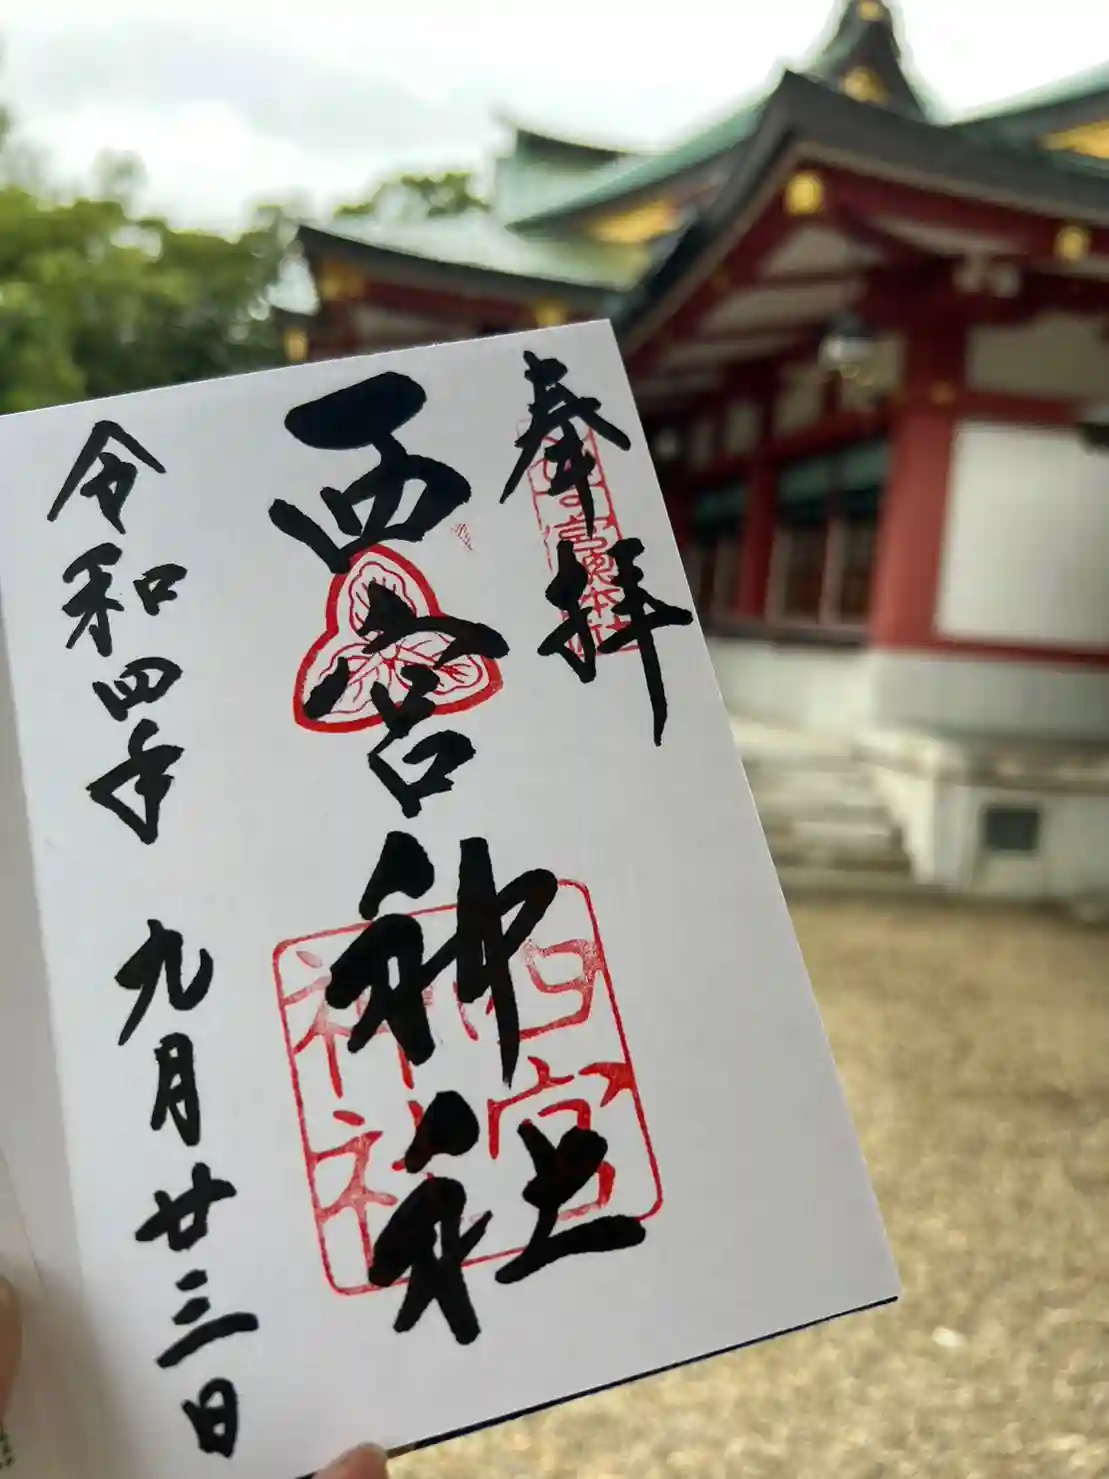 奉拝
西宮神社
令和四年 九月廿三日
西宮
神社